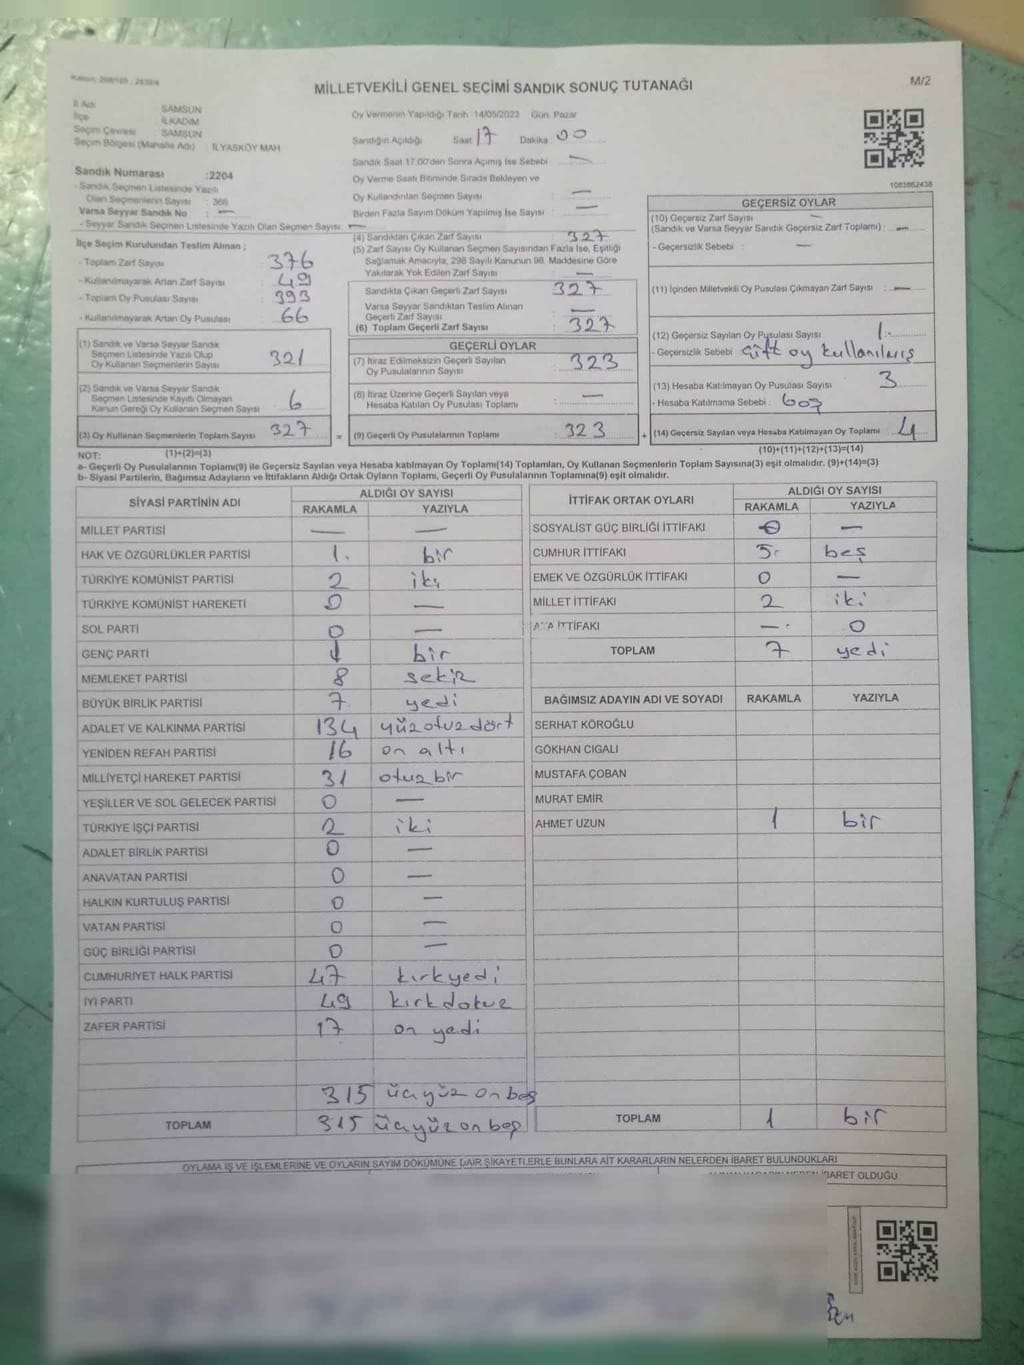 MİLLETVEKİLİ GENEL SEÇİMİ SANDIK SONUÇ TUTANAĞI
M/2
İl Adı : SAMSUN
İlçe : İLKADIM
Seçim Çevresi : SAMSUN
Seçim Bölgesi (Mahalle Adı) : İLYASKÖY MAH
Sandık Numarası :2204
- Sandık Seçmen Listesinde Yazılı
Olan Seçmenlerin Sayısı : 366
Varsa Seyyar Sandık No : —
- Seyyar Sandık Seçmen Listesinde Yazılı Olan Seçmen Sayısı : —
Oy Vermenin Yapıldığı Tarih :14/05/2023 Gün: Pazar
Sandığın Açıldığı Saat 17 Dakika 00
Sandık Saat 17.00'den Sonra Açılmış İse Sebebi —
Oy Verme Saati Bitiminde Sırada Bekleyen ve
Oy Kullandırılan Seçmen Sayısı : —
Birden Fazla Sayım Döküm Yapılmış İse Sayısı : —
1083862438
İlçe Seçim Kurulundan Teslim Alınan ;
- Toplam Zarf Sayısı 376
- Kullanılmayarak Artan Zarf Sayısı : 49
- Toplam Oy Pusulası Sayısı : 393
- Kullanılmayarak Artan Oy Pusulası : 66
(1) Sandık ve Varsa Seyyar Sandık
Seçmen Listesinde Yazılı Olup
Oy Kullanan Seçmenlerin Sayısı 321
(2) Sandık ve Varsa Seyyar Sandık
Seçmen Listesinde Kayıtlı Olmayan
Kanun Gereği Oy Kullanan Seçmen Sayısı 6
(3) Oy Kullanan Seçmenlerin Toplam Sayısı 327
(4) Sandıktan Çıkan Zarf Sayısı : 327
(5) Zarf Sayısı Oy Kullanan Seçmen Sayısından Fazla İse, Eşitliği
Sağlamak Amacıyla, 298 Sayılı Kanunun 98. Maddesine Göre
Yakılarak Yok Edilen Zarf Sayısı : —
Sandıkta Çıkan Geçerli Zarf Sayısı 327
Varsa Seyyar Sandıktan Teslim Alınan
Geçerli Zarf Sayısı : —
(6) Toplam Geçerli Zarf Sayısı : 327
GEÇERLİ OYLAR
(7) İtiraz Edilmeksizin Geçerli Sayılan
Oy Pusulalarının Sayısı : 323
(8) İtiraz Üzerine Geçerli Sayılan veya
Hesaba Katılan Oy Pusulası Toplamı : —
= (9) Geçerli Oy Pusulalarının Toplamı : 323
GEÇERSİZ OYLAR
(10) Geçersiz Zarf Sayısı —
(Sandık ve Varsa Seyyar Sandık Geçersiz Zarf Toplamı) : —
- Geçersizlik Sebebi : —
(11) İçinden Milletvekili Oy Pusulası Çıkmayan Zarf Sayısı : —
(12) Geçersiz Sayılan Oy Pusulası Sayısı : 1
- Geçersizlik Sebebi : çift oy kullanılmış
(13) Hesaba Katılmayan Oy Pusulası Sayısı : 3
- Hesaba Katılmama Sebebi : boş
+ (14) Geçersiz Sayılan veya Hesaba Katılmayan Oy Toplamı : 4
NOT: (1)+(2)=(3) (10)+(11)+(12)+(13)=(14)
a- Geçerli Oy Pusulalarının Toplamı(9) ile Geçersiz Sayılan veya Hesaba katılmayan Oy Toplamı(14) Toplamları, Oy Kullanan Seçmenlerin Toplam Sayısına(3) eşit olmalıdır. (9)+(14)=(3)
b- Siyasi Partilerin, Bağımsız Adayların ve İttifakların Aldığı Ortak Oyların Toplamı, Geçerli Oy Pusulalarının Toplamına(9) eşit olmalıdır.
SİYASİ PARTİNİN ADI ALDIĞI OY SAYISI
RAKAMLA YAZIYLA
MİLLET PARTİSİ — —
HAK VE ÖZGÜRLÜKLER PARTİSİ 1. bir
TÜRKİYE KOMÜNİST PARTİSİ 2 iki
TÜRKİYE KOMÜNİST HAREKETİ 0 —
SOL PARTİ 0 —
GENÇ PARTİ 1 bir
MEMLEKET PARTİSİ 8 sekiz
BÜYÜK BİRLİK PARTİSİ 7 yedi
ADALET VE KALKINMA PARTİSİ 134 yüzotuzdört
YENİDEN REFAH PARTİSİ 16 on altı
MİLLİYETÇİ HAREKET PARTİSİ 31 otuzbir
YEŞİLLER VE SOL GELECEK PARTİSİ 0 —
TÜRKİYE İŞÇİ PARTİSİ 2 iki
ADALET BİRLİK PARTİSİ 0 —
ANAVATAN PARTİSİ 0 —
HALKIN KURTULUŞ PARTİSİ 0 —
VATAN PARTİSİ 0 —
GÜÇ BİRLİĞİ PARTİSİ 0 —
CUMHURİYET HALK PARTİSİ 47 kırkyedi
İYİ PARTİ 49 kırkdokuz
ZAFER PARTİSİ 17 on yedi
315 üçyüz onbeş
TOPLAM 315 üçyüz onbeş
İTTİFAK ORTAK OYLARI ALDIĞI OY SAYISI
RAKAMLA YAZIYLA
SOSYALİST GÜÇ BİRLİĞİ İTTİFAKI 0 —
CUMHUR İTTİFAKI 5. beş
EMEK VE ÖZGÜRLÜK İTTİFAKI 0 —
MİLLET İTTİFAKI 2 iki
ATA İTTİFAKI — 0
TOPLAM 7 yedi
BAĞIMSIZ ADAYIN ADI VE SOYADI RAKAMLA YAZIYLA
SERHAT KÖROĞLU
GÖKHAN CIGALI
MUSTAFA ÇOBAN
MURAT EMİR
AHMET UZUN 1 bir
TOPLAM 1 bir
OYLAMA İŞ VE İŞLEMLERİNE VE OYLARIN SAYIM DÖKÜMÜNE DAİR ŞİKAYETLERLE BUNLARA AİT KARARLARIN NELERDEN İBARET BULUNDUKLARI
İBARET OLDUĞU